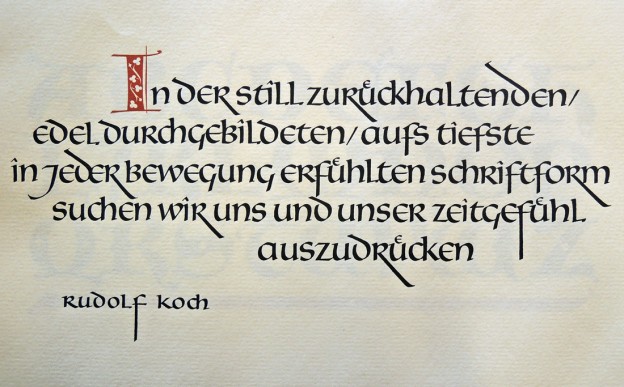 In der still zurückhaltenden/
edel durchgebildeten/aufs tiefste
in jeder Bewegung erfühlten Schriftform
suchen wir uns und unser Zeitgefühl
auszudrücken
Rudolf Koch